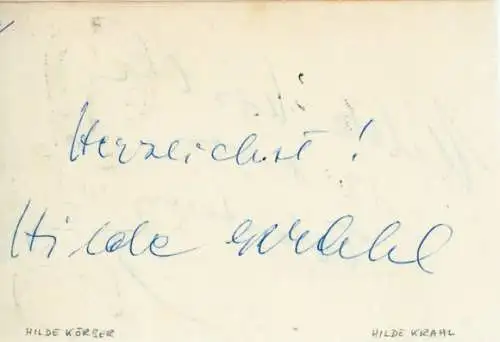 Herzlichst!
Hilde Krahl
HILDE KÖRBER HILDE KRAHL